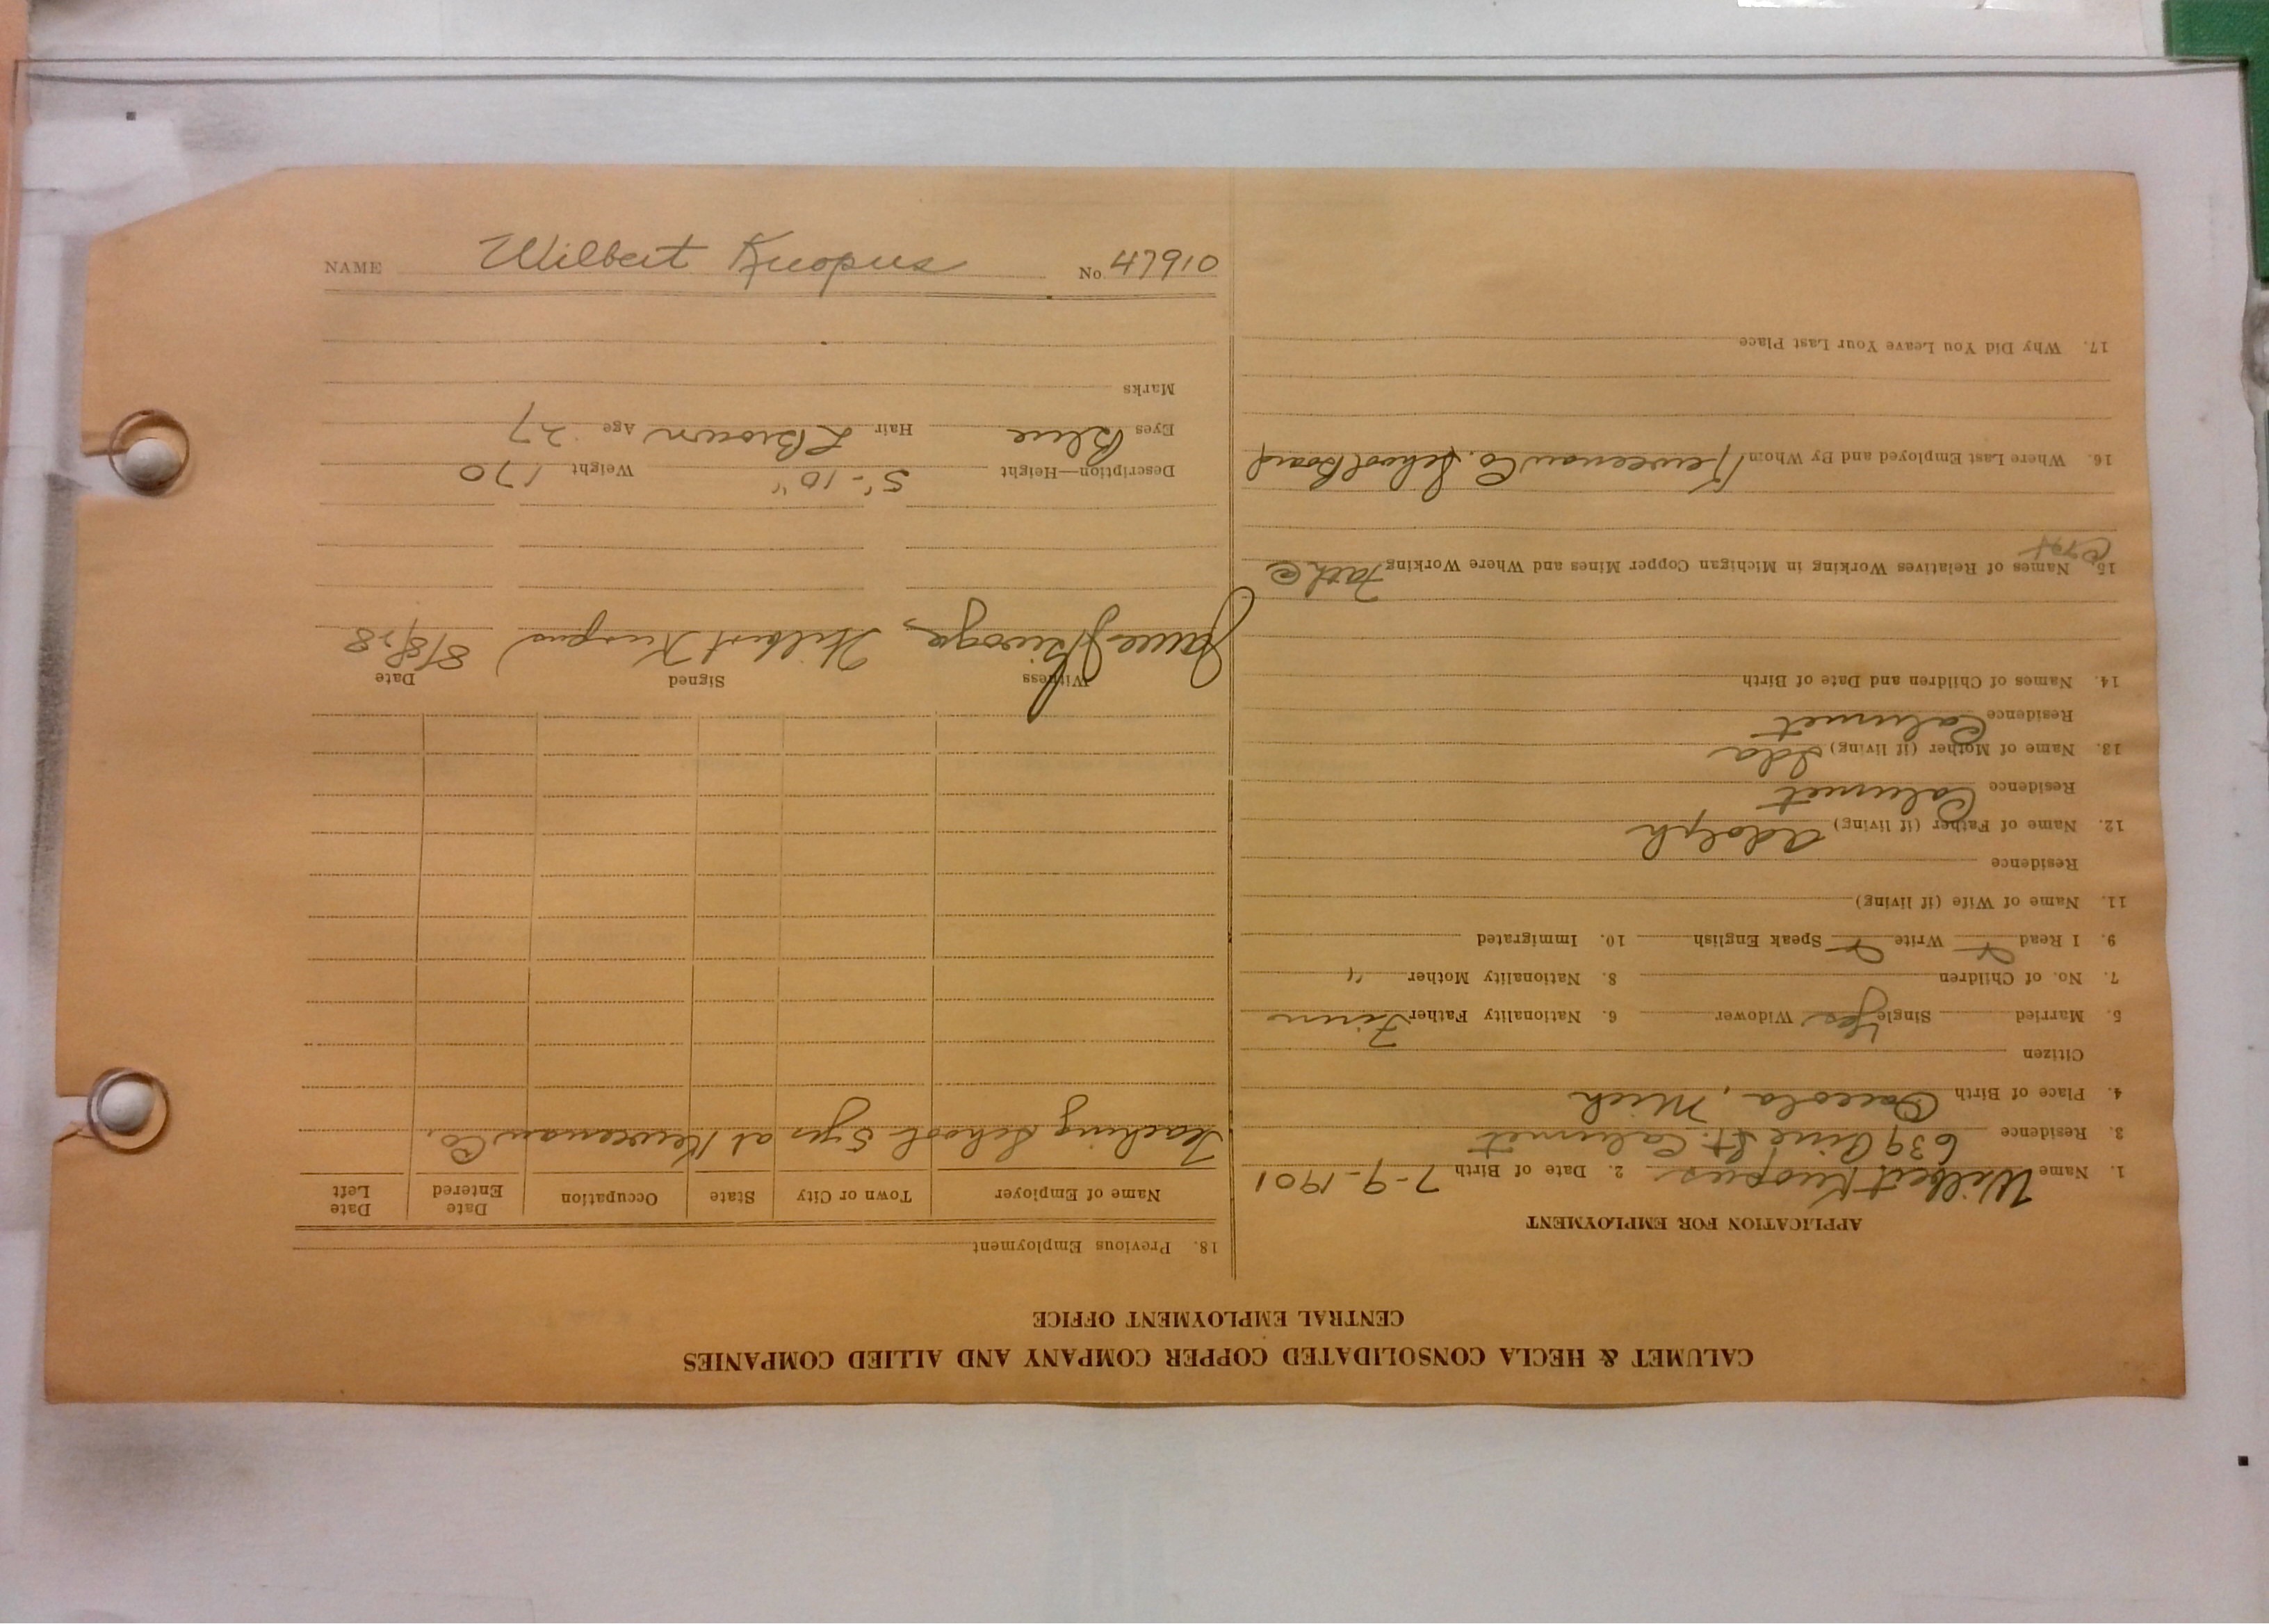 CALUMET & HECLA CONSOLIDATED COPPER COMPANY AND ALLIED COMPANIES
CENTRAL EMPLOYMENT OFFICE
APPLICATION FOR EMPLOYMENT
1. Name Wilbert Kuopus 2. Date of Birth 7-9-1901
3. Residence 639 Pine St. Calumet
4. Place of Birth Osceola, Mich
Citizen
5. Married Single Yes Widower 6. Nationality Father Finn
7. No. of Children 8. Nationality Mother "
9. I Read Write Speak English 10. Immigrated
11. Name of Wife (if living)
Residence
12. Name of Father (if living) Adolph
Residence Calumet
13. Name of Mother (if living) Ida
Residence Calumet
14. Names of Children and Date of Birth
15. Names of Relatives Working in Michigan Copper Mines and Where Working Fath @
16. Where Last Employed and By Whom Keweenaw Co. School Board
17. Why Did You Leave Your Last Place
18. Previous Employment
Name of Employer Town or City State Occupation Date Entered Date Left
Teaching School 5 yrs at Keweenaw Co.
Witness Signed Date
Wilbert Kuopus 8/8/28
Description—Height 5'-10" Weight 170
Eyes Blue Hair L Brown Age 27
Marks
NAME Wilbert Kuopus No. 47910